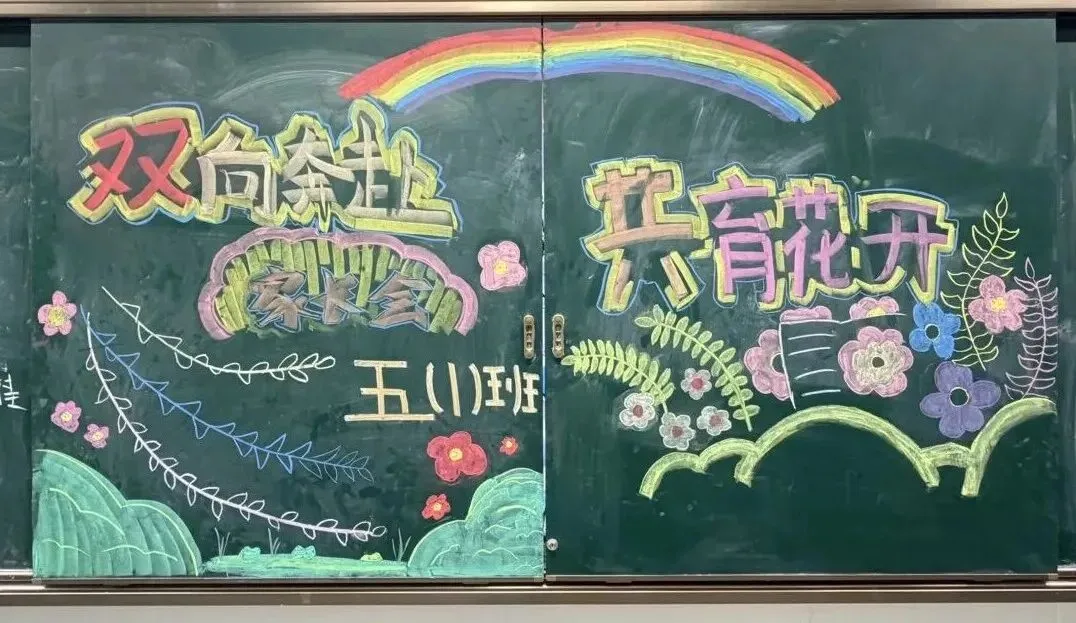 双向奔赴
共育花开
家长会
五(1)班